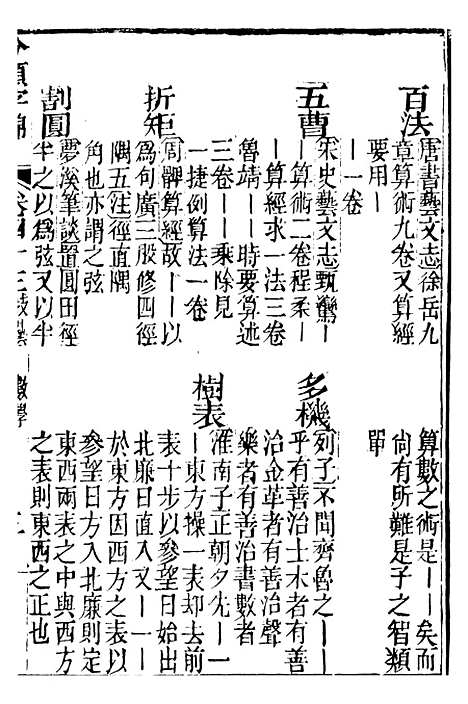 百法
唐書藝文志徐岳九
章算術九卷又算經
要用丨
丨一卷
五曹
宋史藝文志甄鸞丨
丨算術二卷程柔丨
丨算經求一法三卷
魯靖丨丨時要算述
三卷丨丨乘除見
一捷例算法一卷
折矩
周髀算經故丨丨以
為句廣三股修四徑
隅五注徑直隅
角也亦謂之弦
割圓
夢溪筆談置圓田徑
半之以為弦又以半
算數之術是丨丨矣而
尙有所難是子之智類
單
多機
列子不問齊魯之丨丨
乎有善治土木者有善
治金革者有善治聲
樂者有善治書數者
樹表
淮南子正朝夕先丨一
丨東方操一表却去前
表十步以參望日始出
北廉日直入又丨一丨
於東方因西方之表以
參望日方入北廉則定
東西兩表之中與西方
之表則東西之正也
分類字錦
卷四十三技藝 數學